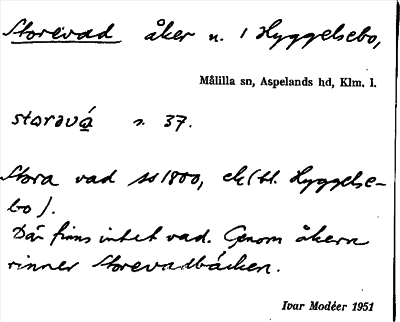 Storevad åker n. 1 Hyggelsebo,
Målilla sn, Aspelands hd, Klm. l.
storəvá s. 37.
Stora vad ss 1800, ek(bl. Hyggelse-
bo).
Där finns intet vad. Genom åkern
rinner Storevadbäcken.
Ivar Modéer 1951